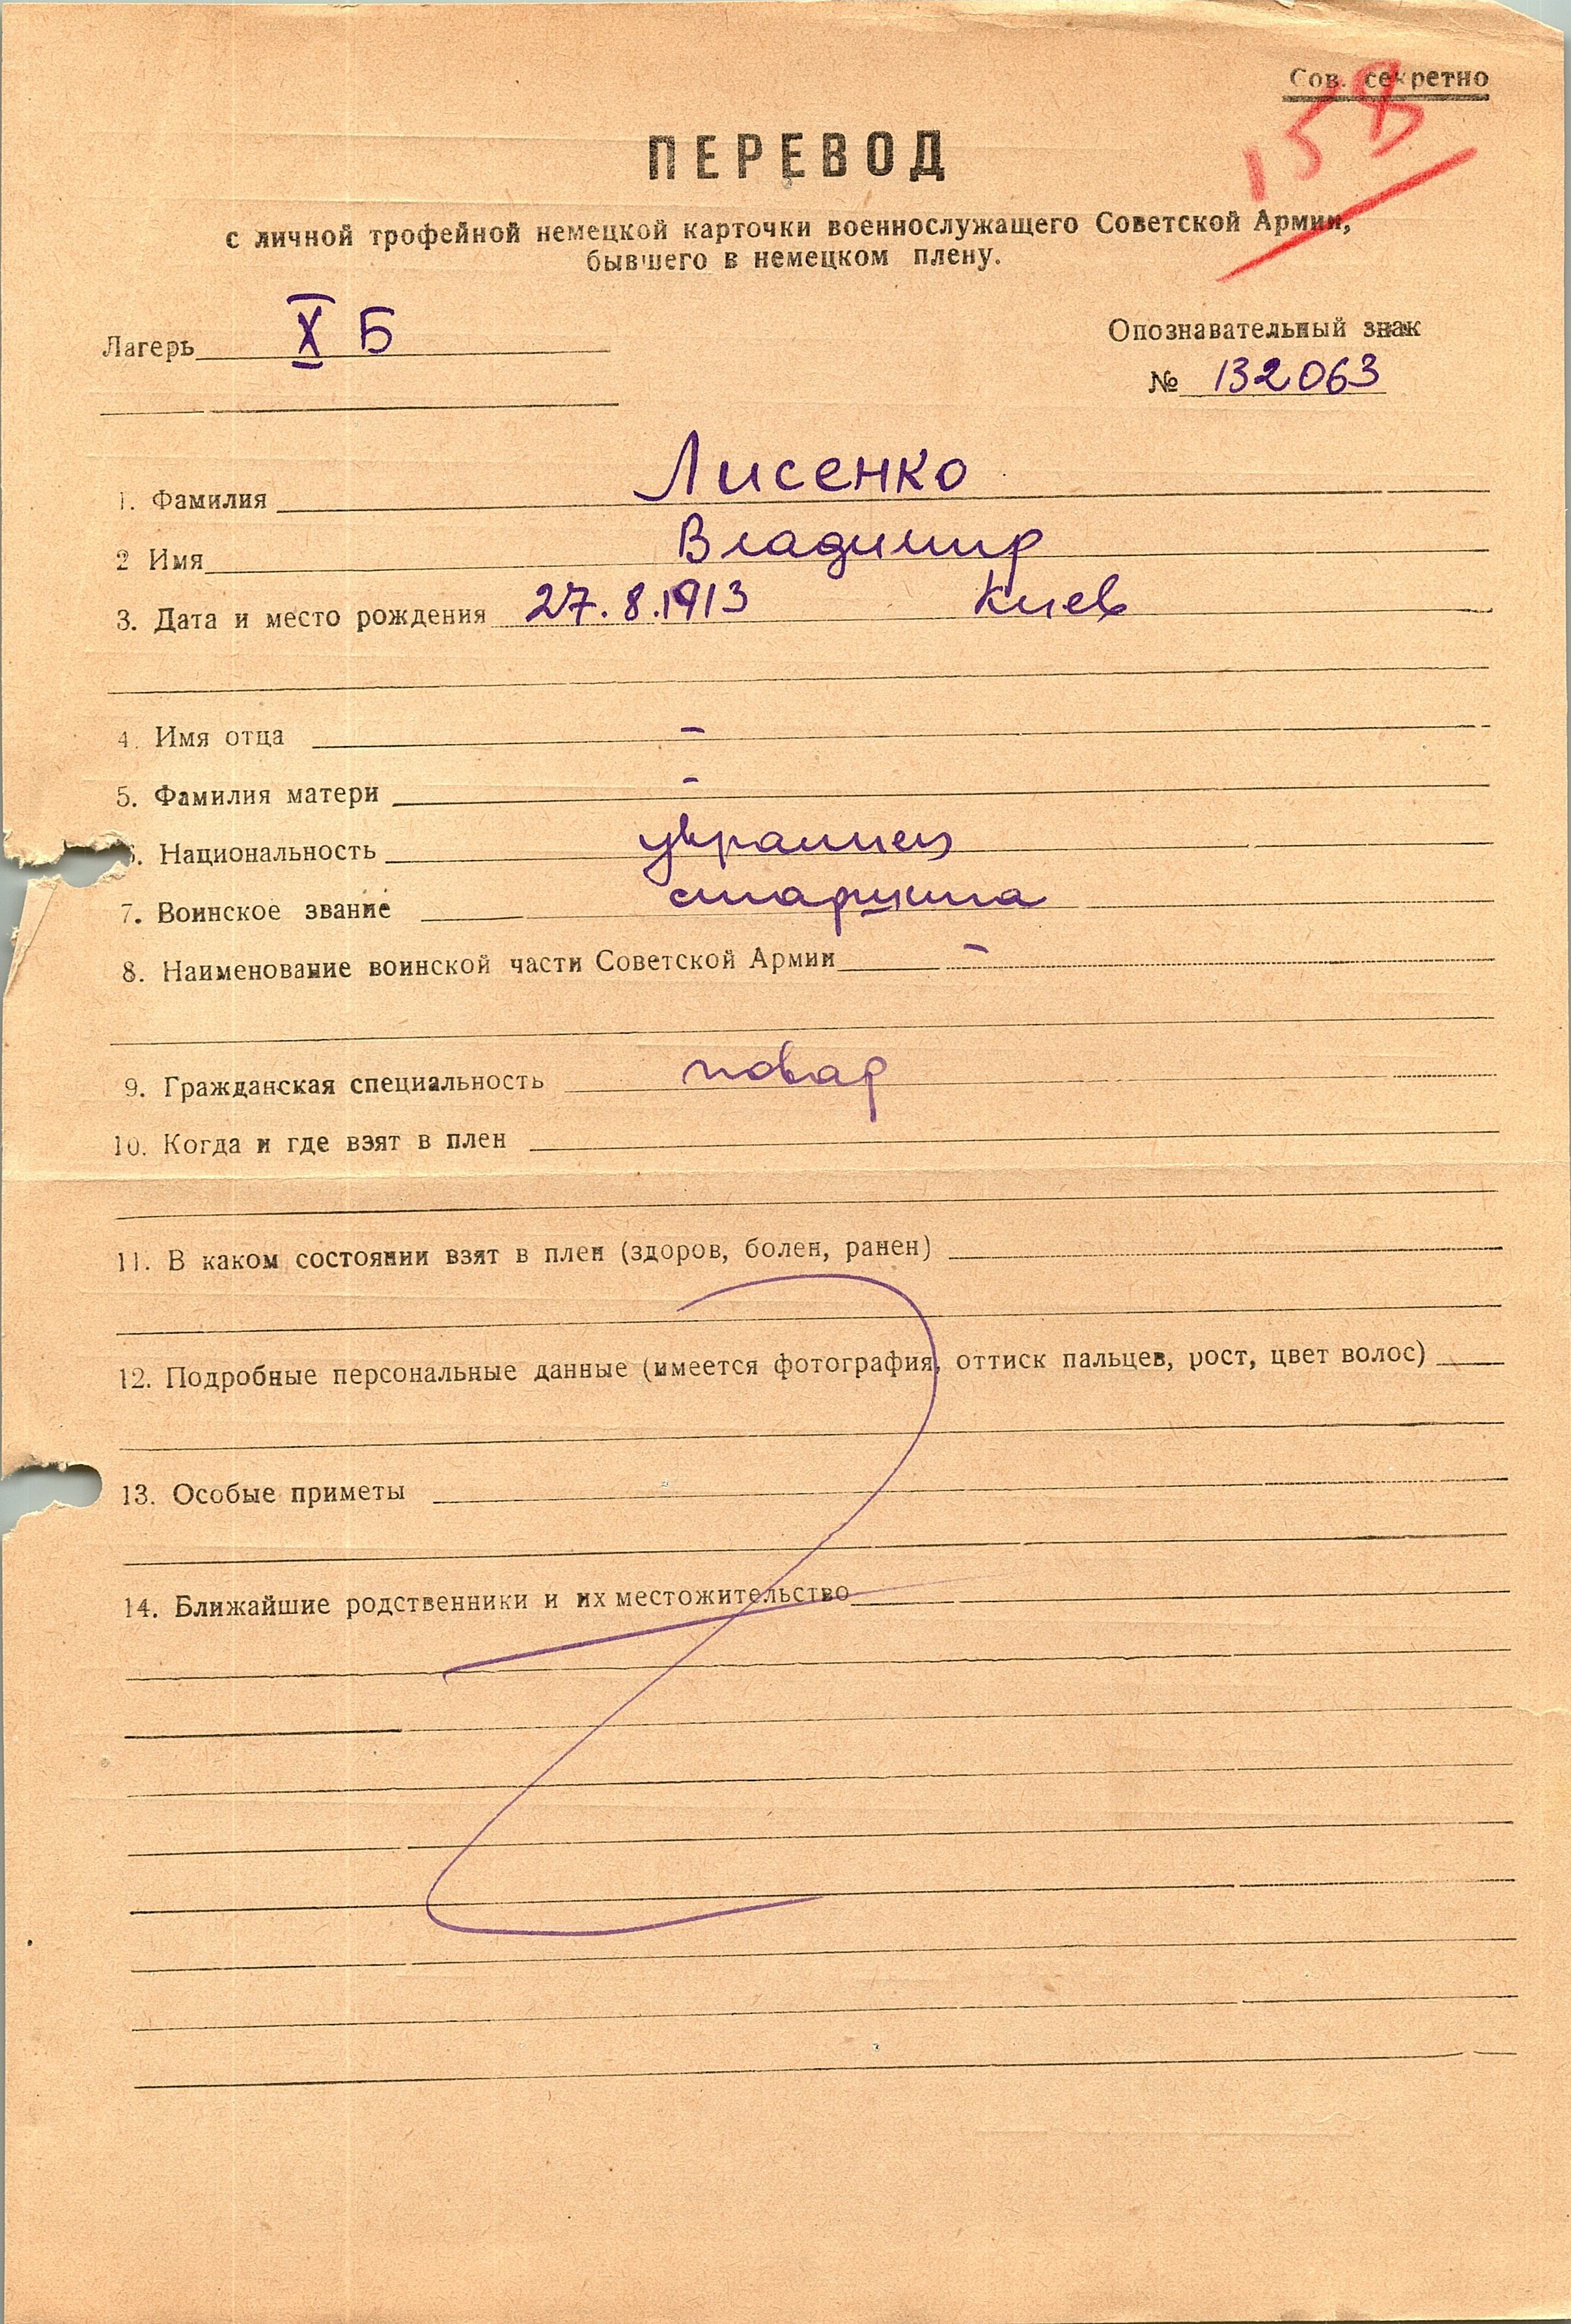 Сов. секретно
158
ПЕРЕВОД
с личной трофейной немецкой карточки военнослужащего Советской Армии,
бывшего в немецком плену.
Лагерь X Б
Опознавательный знак
№ 132063
1. Фамилия Лисенко
2 Имя Владимир
3. Дата и место рождения 27.8.1913 Киев
4. Имя отца –
5. Фамилия матери –
6. Национальность украинец
7. Воинское звание старшина
8. Наименование воинской части Советской Армии –
9. Гражданская специальность повар
10. Когда и где взят в плен
11. В каком состоянии взят в плен (здоров, болен, ранен)
12. Подробные персональные данные (имеется фотография, оттиск пальцев, рост, цвет волос)
13. Особые приметы
14. Ближайшие родственники и их местожительство